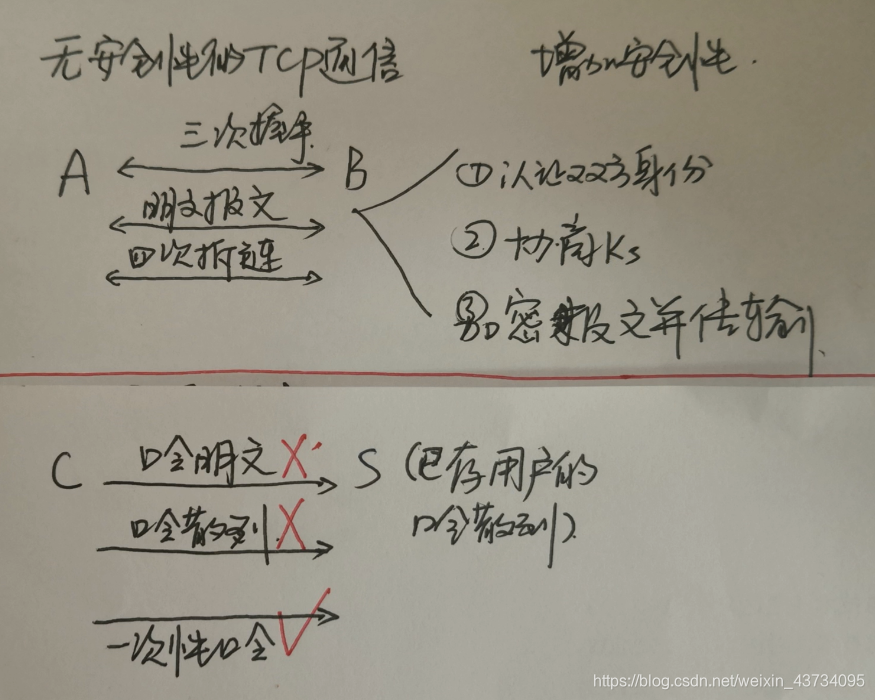 无安全性的TCP通信
增加安全性.
三次握手
A
B
明文报文
四次拆链
①认证双方身份
②协商Ks
③加密报文并传输
C
口令明文X
S
(已存用户的
口令散列)
口令散列X
一次性口令√
https://blog.csdn.net/weixin_43734095